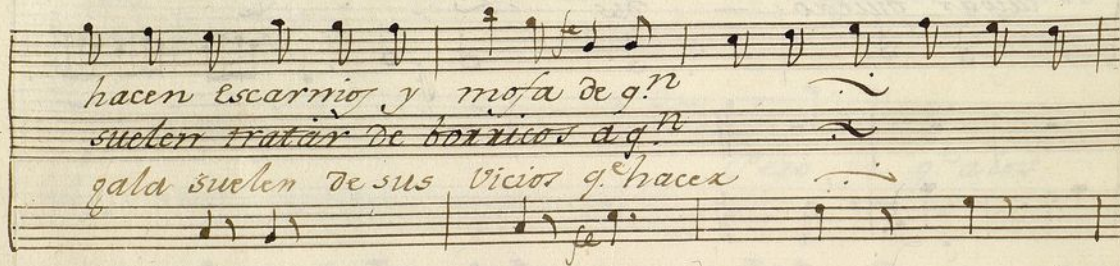 fe
hacen escarnios y mofa de q.n
suelen tratar de borricos a q.n
gala suelen de sus Vicios q.e hacer
fe